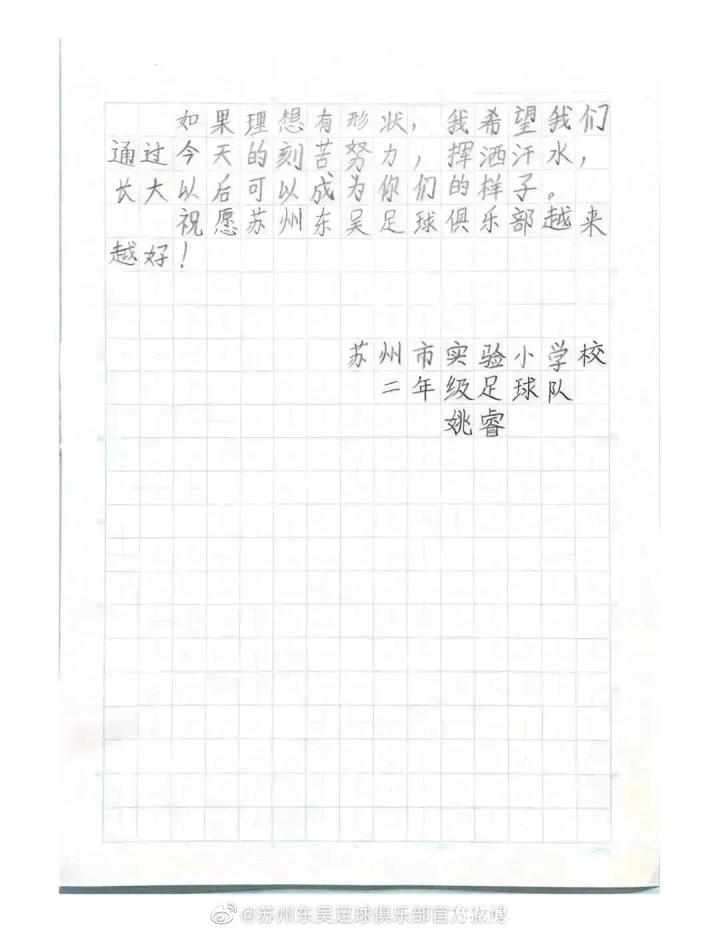 如果理想有形状，我希望我们
通过今天的刻苦努力，挥洒汗水，
长大以后可以成为你们的样子。
祝愿苏州东吴足球俱乐部越来
越好！
苏州市实验小学校
二年级足球队
姚睿
@苏州东吴足球俱乐部官方微博